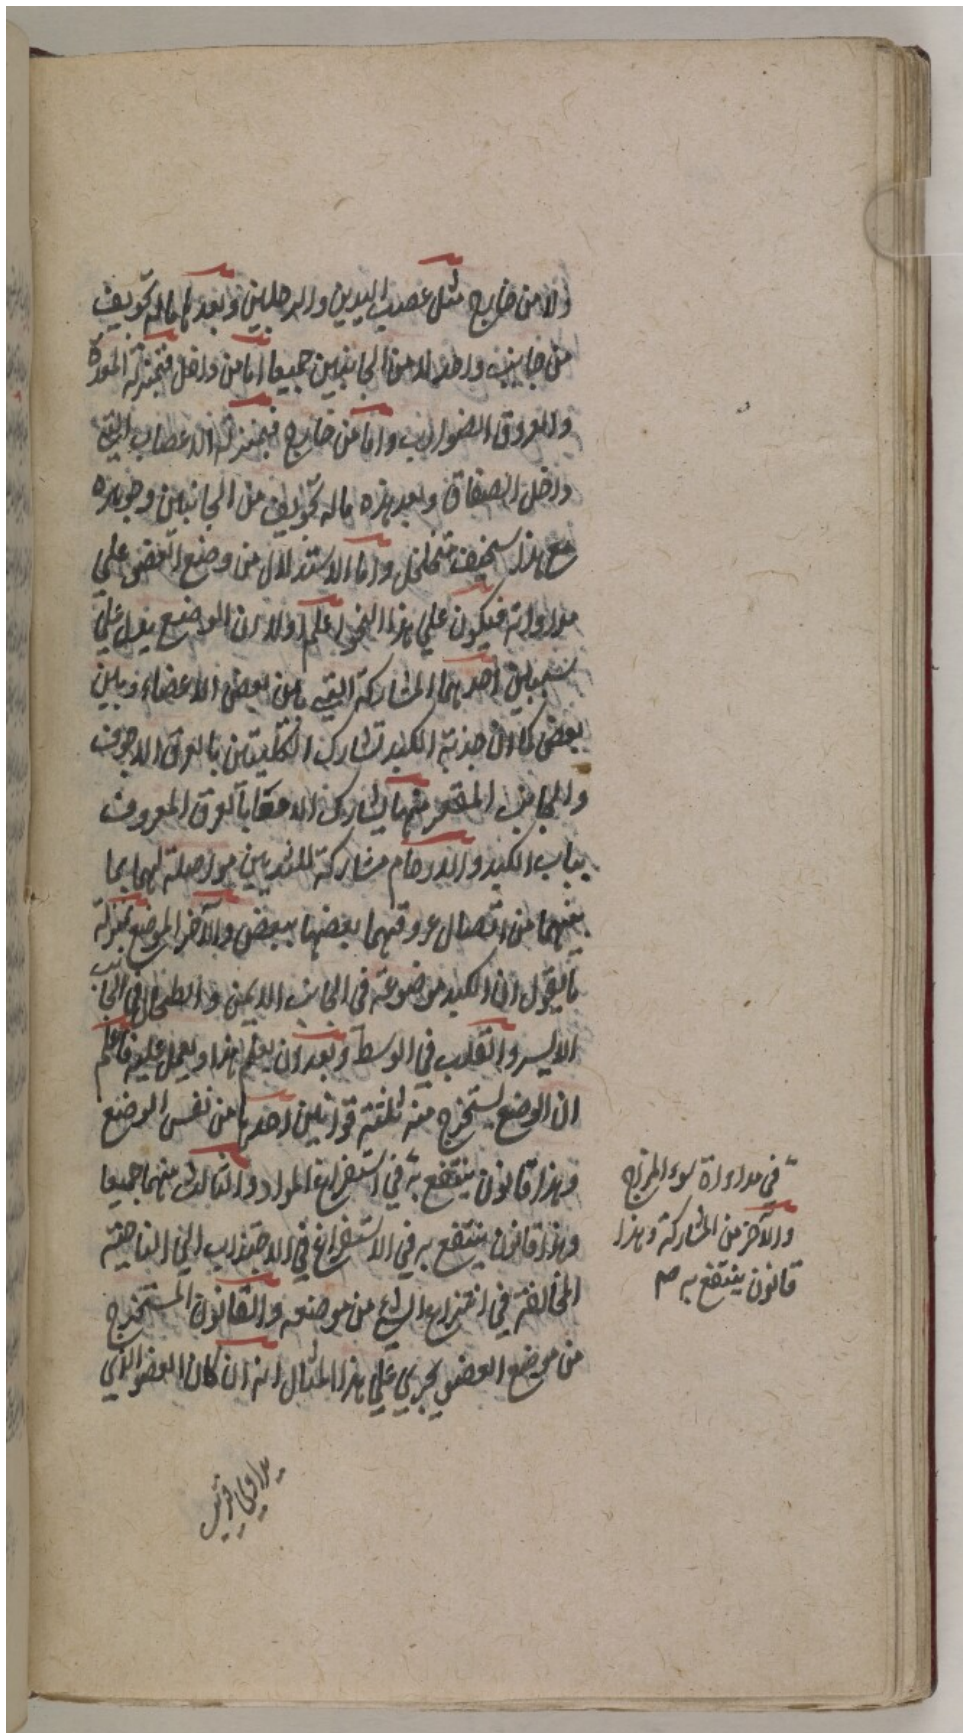 ولا من خارج مثل عصب اليدين والرجلين وبعدها ماله تجويف
من جانب واحد لا من الجانبين جميعا اما من داخل فبمنزلة المعدة
والعروق الضوارب واما من خارج فبمنزلة الاعصاب التي
داخل الصفاق وبعد هذه ما له تجويف من الجانبين وجوهره
مع هذا سخيف متخلخل واما الاستدلال من وضع العضو علي
مداواته فيكون علي هذا النحو اعلم اولا ان الوضع يدل علي
شيئين احدهما المشاركة التي بين بعض الاعضاء وبين
بعض كما ان حدبة الكبد تشارك الكليتين بالعرق الاجوف
والجانب المقعر منها يشارك الامعا بالعرق المعروف
بباب الكبد والارحام مشاركة للثديين مواصلة لهما بما
بينهما من اتصال عروقهما بعضها ببعض والآخر الموضع بمنزلة
ما يقول ان الكبد موضوعة في الجانب الايمن والطحال في الجانب
الايسر والقلب في الوسط وبعد ان يعلم هذا ويعمل عليه فاعلم
ان الوضع يستخرج منه ثلثة قوانين احدها من نفس الوضع
وهذا قانون ينتفع به في استفراغ المواد والثالث منهما جميعا
وهذا قانون ينتفع به في الاستفراغ في الاجتذاب الي الناحية
المخالفة في انتزاع الشئ من موضعه والقانون المستخرج
من موضع العضو يجري علي هذا المثال انه ان كان العضو الذي
في مداواة سوء المزاج
والآخر من المشاركة وهذا
قانون ينتفع به صح